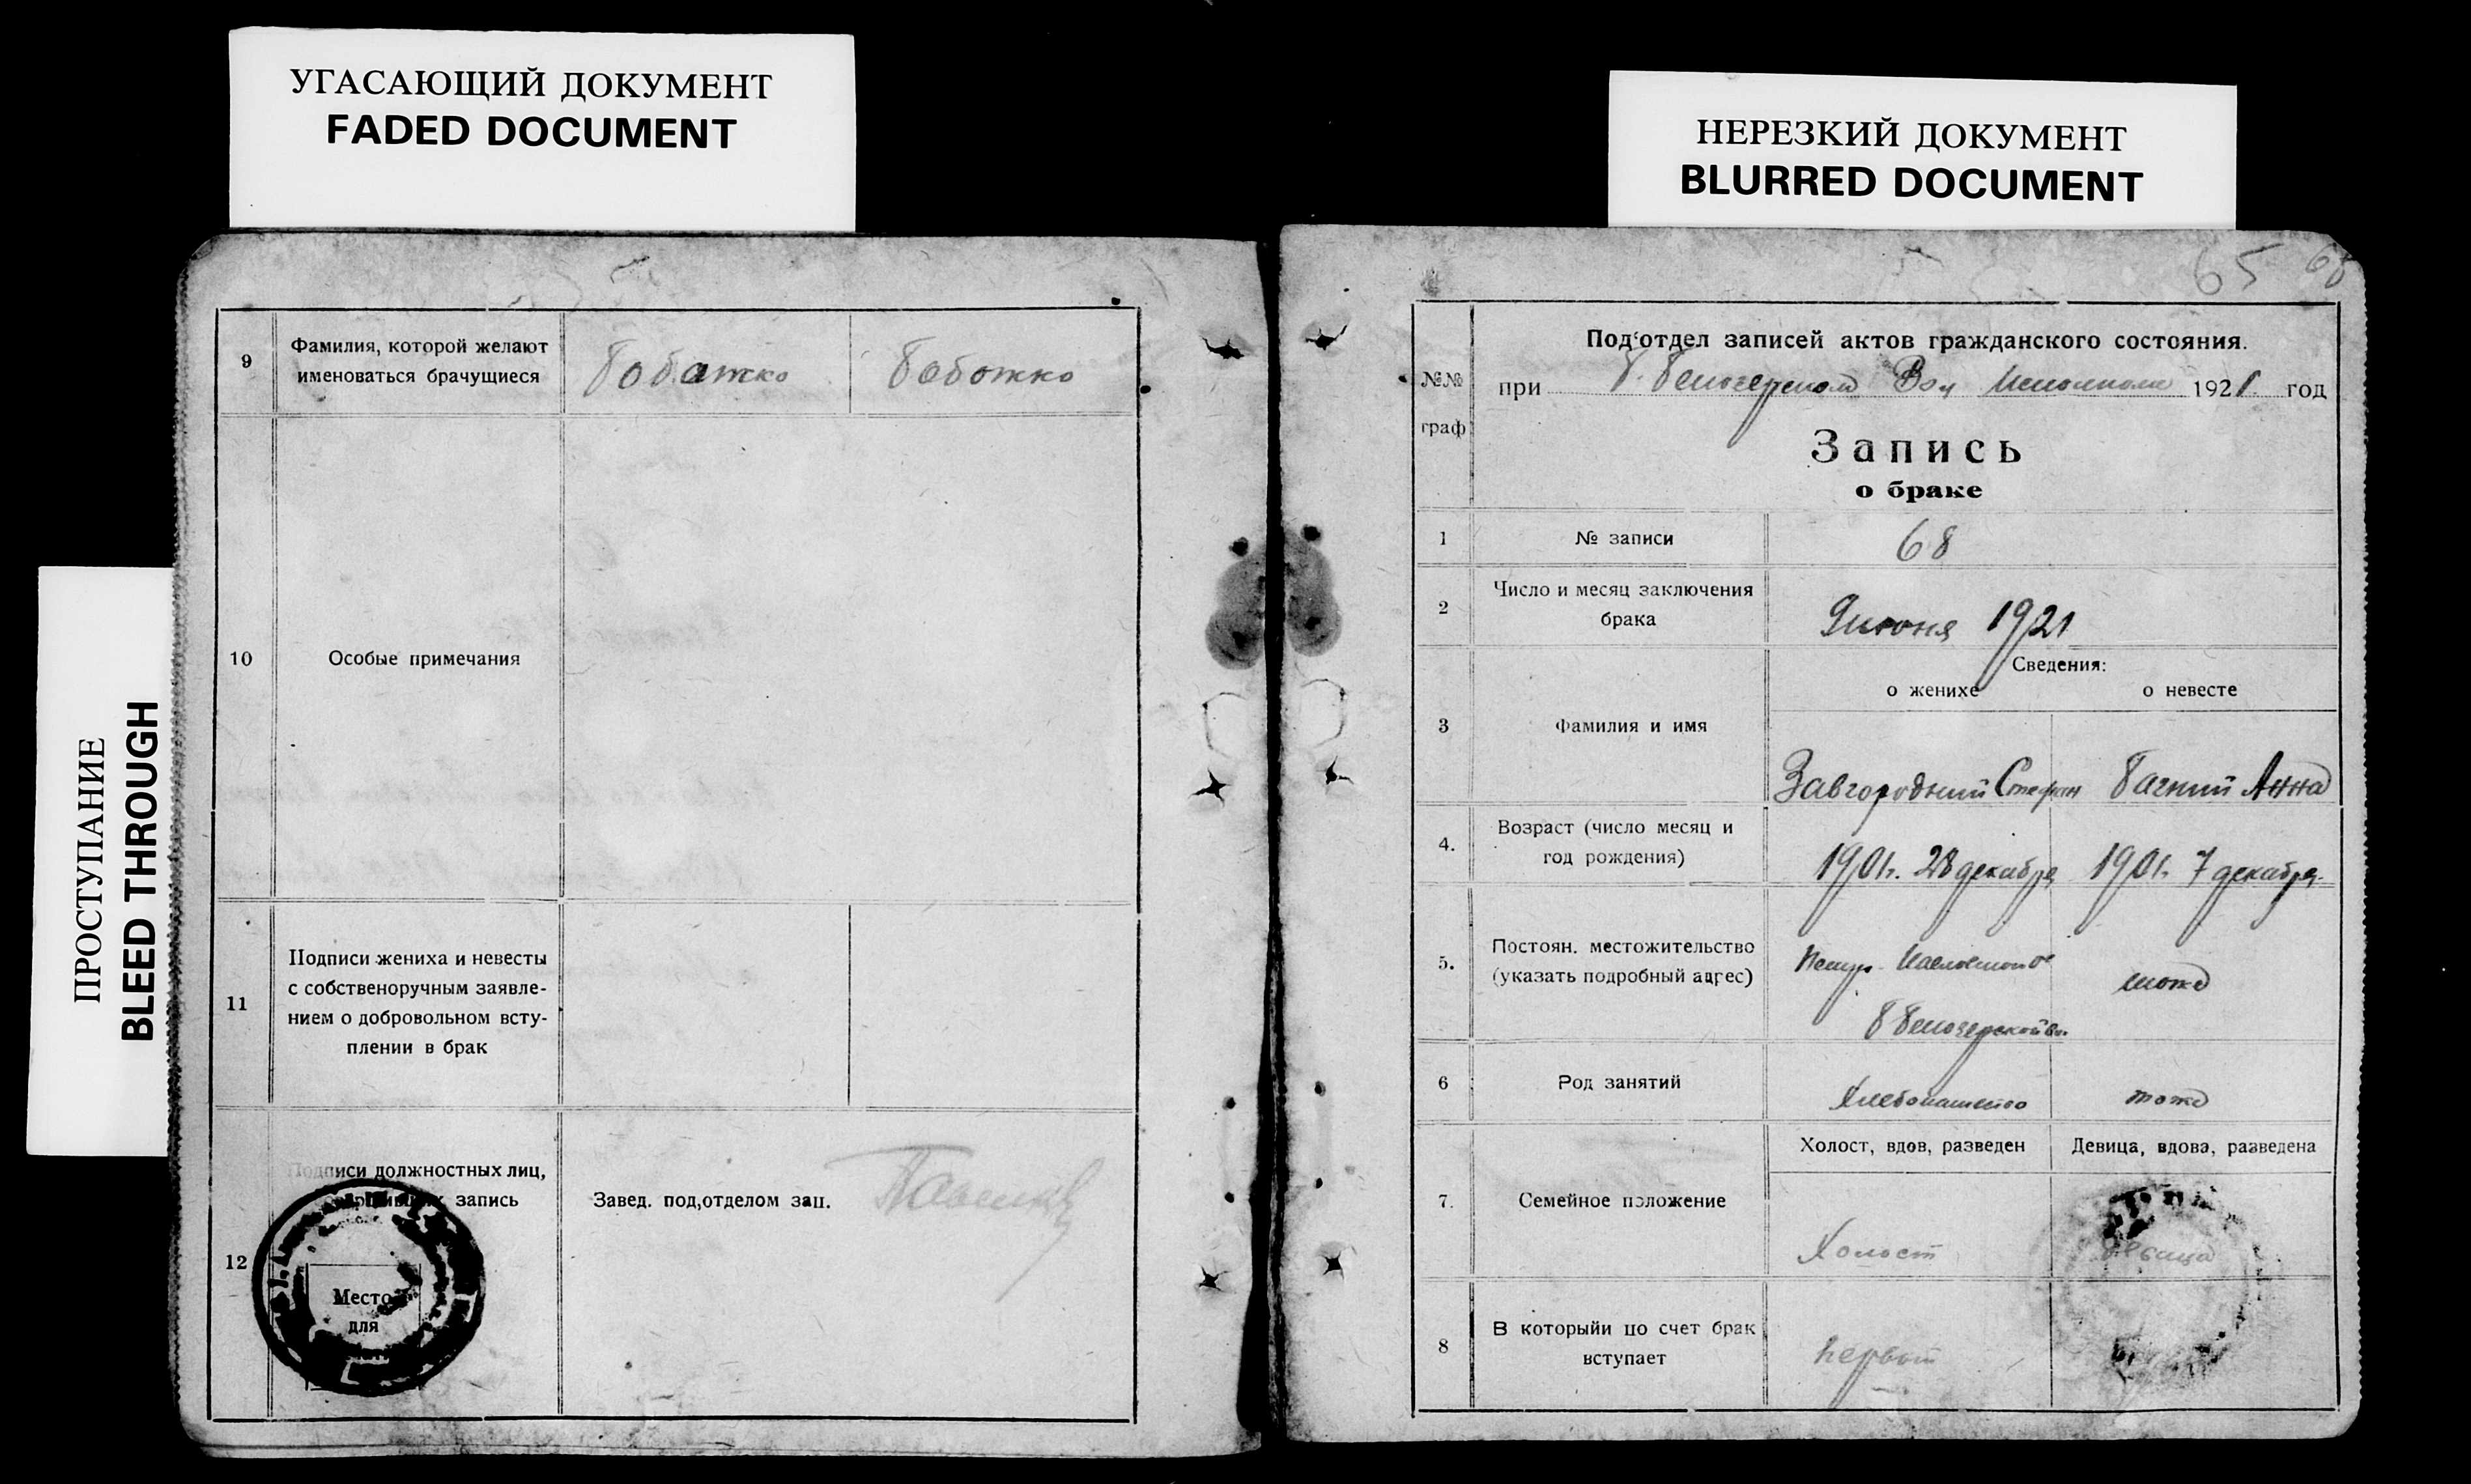 УГАСАЮЩИЙ ДОКУМЕНТ
FADED DOCUMENT
НЕРЕЗКИЙ ДОКУМЕНТ
BLURRED DOCUMENT
ПРОСТУПАНИЕ
BLEED THROUGH
9
Фамилия, которой желают
именоваться брачущиеся
10
Особые примечания
11
Подписи жениха и невесты
с собственоручным заявле-
нием о добровольном всту-
плении в брак
12
Подписи должностных лиц,
запись
Место
для
Завед. под,отделом зап.
65 68
№№
граф
Под‘отдел записей актов гражданского состояния.
при Б. Белозерском Вол Исполкоме 1921. год
Запись
о браке
1
№ записи
68
2
Число и месяц заключения
брака
9 июня 1921
3
Фамилия и имя
Сведения:
о женихе
о невесте
Завгородний Стефан
Бачний Анна
4.
Возраст (число месяц и
год рождения)
1901г. 28 декабря
1901г. 7 декабря
5.
Постоян. местожительство
(указать подробный адрес)
Б Белозерской во.
тоже
6
Род занятий
Хлебопашество
тоже
7.
Семейное положение
Холост, вдов, разведен
Девица, вдова, разведена
Холост
девица
8
В которыйи по счет брак
вступает
первый